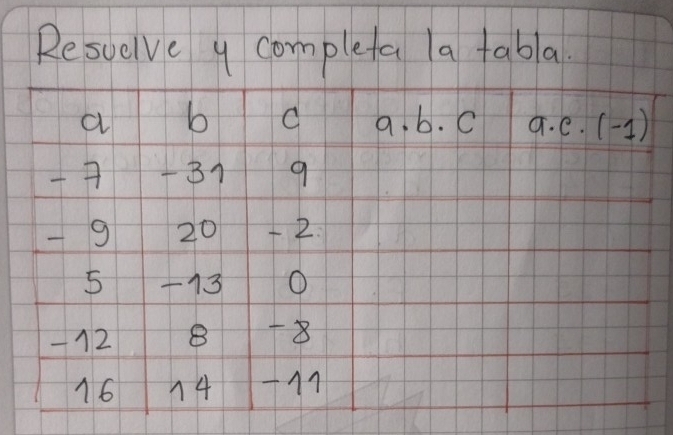 Resuelve y completa la tabla.
a b c a.b.c a.c.(-1)
-7 -31 9
-9 20 -2
5 -13 0
-12 8 -8
16 14 -11